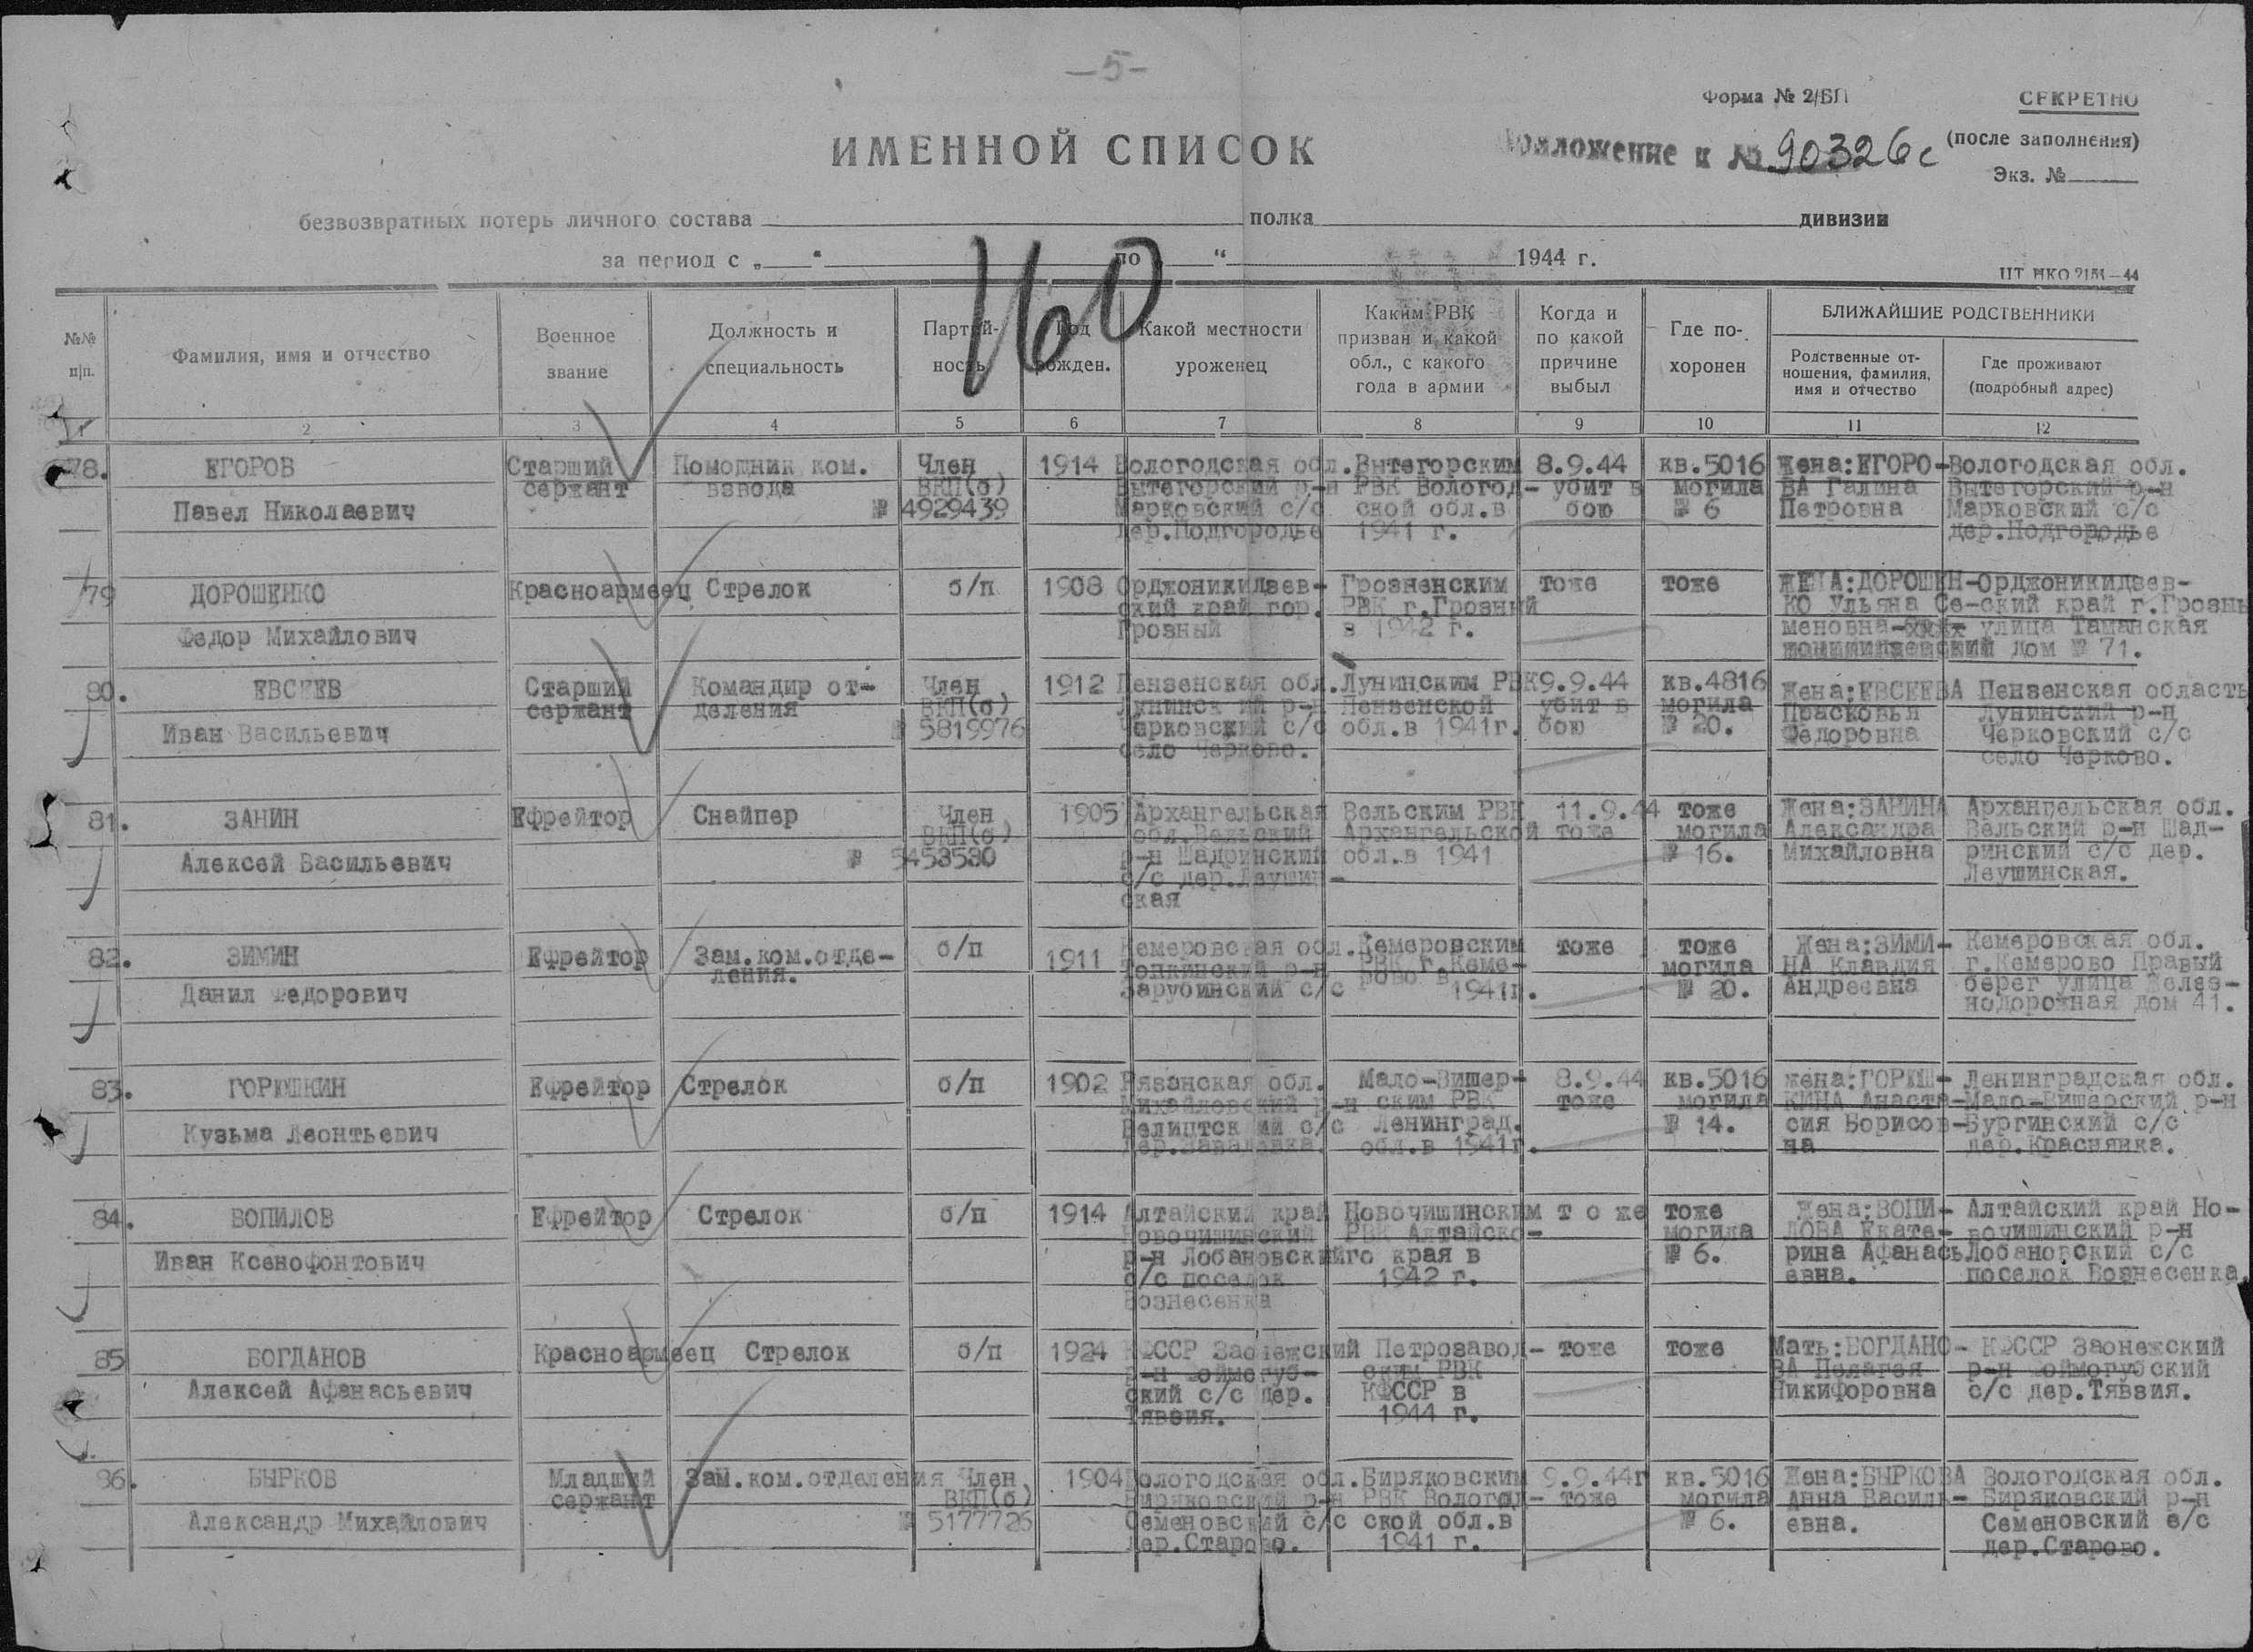 —5—
Форма № 2/БП
СЕКРЕТНО
(после заполнения)
Экз. №
Приложение к № 90326с
ИМЕННОЙ СПИСОК
безвозвратных потерь личного состава полка дивизии
за период с „ “ по „ “ 1944 г.
160
№№ п|п.
Фамилия, имя и отчество
Военное звание
Должность и специальность
Партий-ность
Год рожден.
Какой местности уроженец
Каким РВК призван и какой обл., с какого года в армии
Когда и по какой причине выбыл
Где по-хоронен
БЛИЖАЙШИЕ РОДСТВЕННИКИ
Родственные от-ношения, фамилия, имя и отчество
Где проживают (подробный адрес)
1 2 3 4 5 6 7 8 9 10 11 12
78. ЕГОРОВ Старший Помощник ком. Член 1914 Вологодская обл. Вытегорским 8.9.44 кв.5016 Жена:ЕГОРО- Вологодская обл.
сержант взвода ВКП(б) Вытегорский р-н РВК Вологод- убит в могила ВА Галина Вытегорский р-н
Павел Николаевич № 4929439 Марковский с/с ской обл.в бою № 6 Петровна Марковский с/с
дер.Подгородье 1941 г. дер.Подгородье
79 ДОРОШЕНКО Красноармеец Стрелок б/п 1908 Орджоникидзев- Грозненским тоже тоже ЖЕНА:ДОРОШЕН- Орджоникидзев-
ский край гор. РВК г.Грозный КО Ульяна Се- ский край г.Грозны
Федор Михайлович Грозный в 1942 г. меновна- улица Таманская
дом № 71.
80. ЕВСЕЕВ Старший Командир от- Член 1912 Пензенская обл. Лунинским РВК 9.9.44 кв.4816 Жена:ЕВСЕЕВА Пензенская область
сержант деления ВКП(б) Лунинск ий р-н Пензенской убит в могила Прасковья Лунинский р-н
Иван Васильевич № 5819976 Черковский с/с обл.в 1941г. бою № 20. Федоровна Черковский с/с
село Черково. село Черково.
81. ЗАНИН Ефрейтор Снайпер Член 1905 Архангельская Вельским РВК 11.9.44 тоже Жена:ЗАНИНА Архангельская обл.
ВКП(б) обл.Вельский Архангельской тоже могила Александра Вельский р-н Шад-
Алексей Васильевич № 5453580 р-н Шадринский обл.в 1941 № 16. Михайловна ринский с/с дер.
с/с дер.Леушин- Леушинская.
ская
82. ЗИМИН Ефрейтор Зам.ком.отде- б/п 1911 Кемеровская обл. Кемеровским тоже тоже Жена:ЗИМИ- Кемеровская обл.
ления. Топкинский р-н РВК г.Кеме- могила НА Клавдия г.Кемерово Правый
Данил Федорович Зарубинский с/с рово в 1941г. № 20. Андреевна берег улица Желез-
нодорожная дом 41.
83. ГОРЮШКИН Ефрейтор Стрелок б/п 1902 Рязанская обл. Мало-Вишер- 8.9.44 кв.5016 жена:ГОРЮШ- Ленинградская обл.
Михайловский р-н ским РВК тоже могила КИНА Анаста- Мало-Вишерский р-н
Кузьма Леонтьевич с/с Ленинград. № 14. сия Борисов- Бургинский с/с
обл.в 1941г. на дер.Краснянка.
84. ВОПИЛОВ Ефрейтор Стрелок б/п 1914 Алтайский край Новочишинским т о же тоже Жена:ВОПИ- Алтайский край Но-
Новочишинский РВК Алтайско- могила ЛОВА Екате- вочишинский р-н
Иван Ксенофонтович р-н Лобановский го края в № 6. рина Афанась Лобановский с/с
с/с поселок 1942 г. евна. поселок Вознесенка.
Вознесенка
85 БОГДАНОВ Красноармеец Стрелок б/п 1924 КФССР Заонежский Петрозавод- тоже тоже Мать:БОГДАНО- КФССР Заонежский
р-н Коймогуб- ским РВК ВА Пелагея р-н Коймогубский
Алексей Афанасьевич ский с/с дер. КФССР в Никифоровна с/с дер.Тявзия.
Тявзия. 1944 г.
86. БЫРКОВ Младший Зам.ком.отделения Член 1904 Вологодская обл. Биряковским 9.9.44г кв.5016 Жена:БЫРКОВА Вологодская обл.
сержант ВКП(б) Биряковский р-н РВК Вологод- тоже могила Анна Василь- Биряковский р-н
Александр Михайлович № 5177726 Семеновский с/с ской обл.в № 6. евна. Семеновский с/с
дер.Старово. 1941 г. дер.Старово.